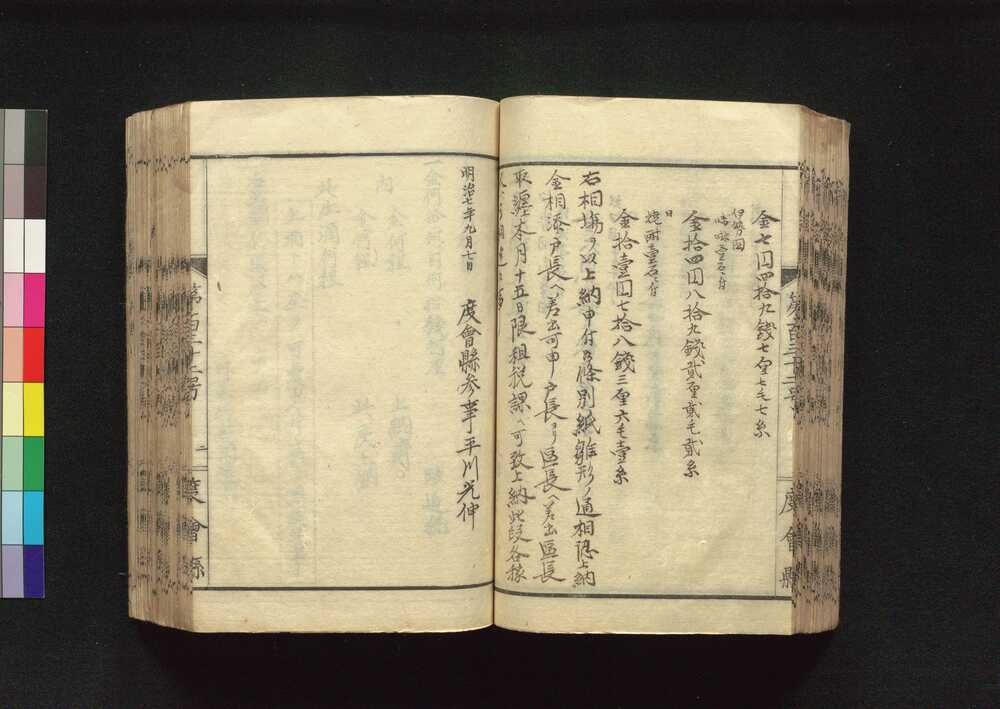 第百三十二号
度會縣
金七円四拾九銭七厘七毛七糸
伊勢国
味淋壹石ニ付
金拾四円八拾九銭貳厘貳毛貳糸
同
焼酎壹石ニ付
金拾壹円七拾八銭三厘六毛壹糸
右相場ヲ以上納申付候條別紙雛形ノ通相認上納
金相添戸長ヘ差出可申戸長ヨリ區長ヘ差出區長
取纏本月十五日限租税課ヘ可致上納此段各様
明治七年九月七日
度會縣参事平川光伸
第百三十二号
二
度會縣